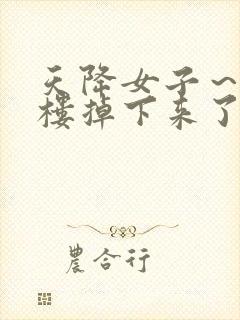 天降女子～
楼掉下来了
農合行